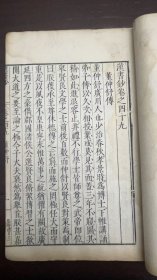 漢書鈔卷之四十九
董仲舒傳
董仲舒廣川人也少治春秋孝景時爲博士下帷講誦
弟子傳以久次相授業或莫見其面蓋三年不窺園其
精如此進退容止非禮不行學士皆師尊之武帝卽位
舉賢良文學之士前後百數而仲舒以賢良對策焉制
曰朕獲承至尊休德傳之亡窮而施之罔極任大而守
重是以夙夜不皇康寧永惟萬事之統猶懼有闕故廣
延四方之豪儁郡國諸侯公選賢良修絜博習之士欲
聞大道之要至論之極今子大夫褎然爲舉首朕甚嘉